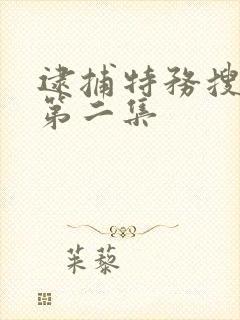 逮捕特务搜
第二集
茱藜